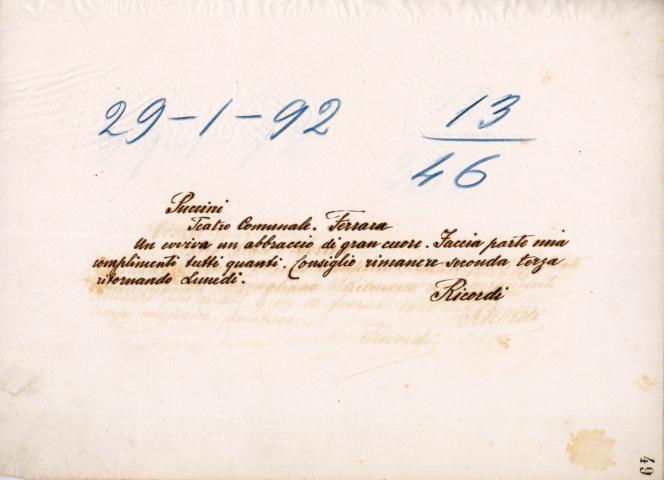 29-1-92
13
46
Puccini
Teatro Comunale. Ferrara
Un evviva un abbraccio di gran cuore. Faccia parte mia
complimenti tutti quanti. Consiglio rimanere seconda terza
ritornando Lunedì.
Ricordi
Ricordi
49